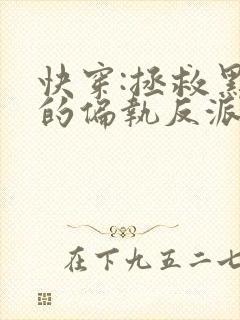 快穿:拯救黑
的偏执反派
在下九五二七